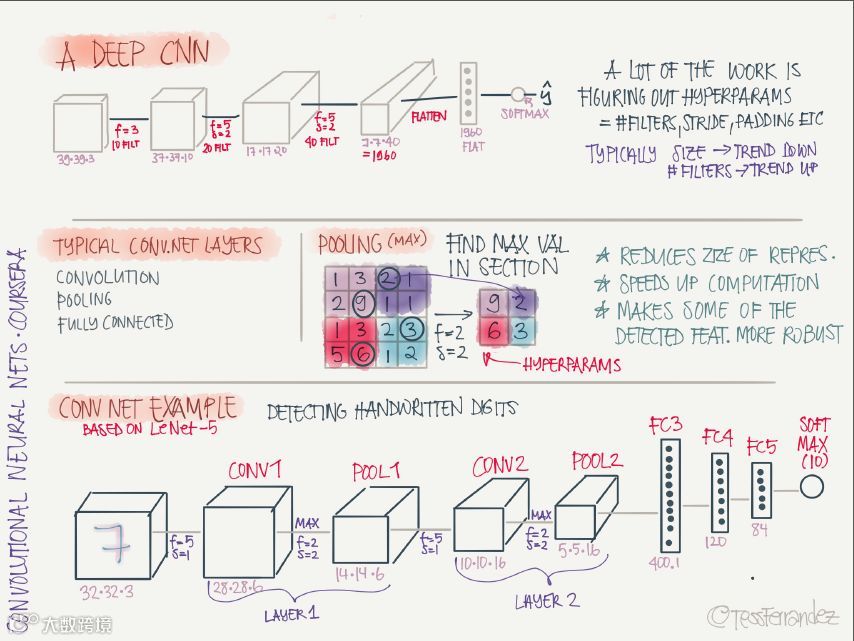 A DEEP CNN
f=3
10 FILT
f=5
s=2
20 FILT
f=5
s=2
40 FILT
FLATTEN
ŷ
SOFTMAX
39·39·3
37·37·10
17·17·20
7·7·40
=1960
1960
FLAT
A LOT OF THE WORK IS
FIGURING OUT HYPERPARAMS
= #FILTERS, STRIDE, PADDING ETC
TYPICALLY SIZE → TREND DOWN
# FILTERS → TREND UP
TYPICAL CONV.NET LAYERS
CONVOLUTION
POOLING
FULLY CONNECTED
POOLING (MAX)
FIND MAX VAL
IN SECTION
1 3 2 1
2 9 1 1
1 3 2 3
5 6 1 2
f=2
s=2
9 2
6 3
HYPERPARAMS
★ REDUCES ZIZE OF REPRES.
★ SPEEDS UP COMPUTATION
★ MAKES SOME OF THE
DETECTED FEAT. MORE ROBUST
CONV NET EXAMPLE
BASED ON LeNet-5
DETECTING HANDWRITTEN DIGITS
7
32·32·3
f=5
s=1
CONV1
28·28·6
MAX
f=2
s=2
POOL1
14·14·6
LAYER 1
f=5
s=1
CONV2
10·10·16
MAX
f=2
s=2
POOL2
5·5·16
LAYER 2
FC3
400,1
FC4
120
FC5
84
SOFT
MAX
(10)
CONVOLUTIONAL NEURAL NETS · COURSERA
@TessFerrandez
大数跨境